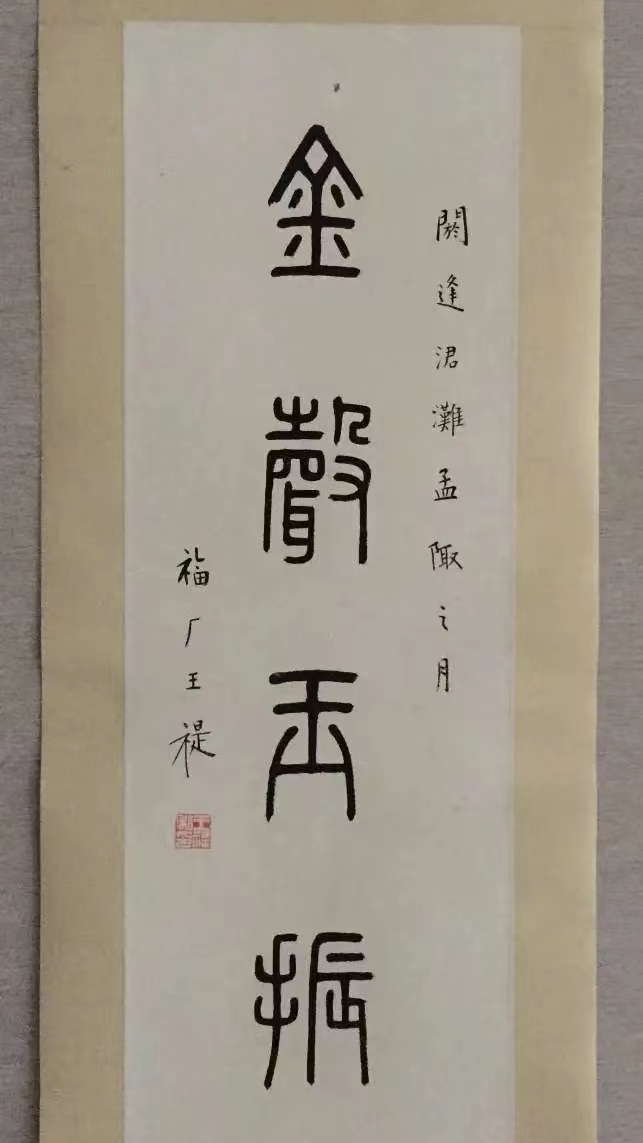 閼逢涒灘孟陬之月
金聲玉振
福厂王禔